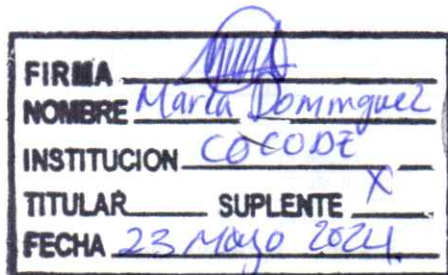 FIRMA
NOMBRE Marta Dominguez
INSTITUCION COCODE
TITULAR SUPLENTE X
FECHA 23 Mayo 2024